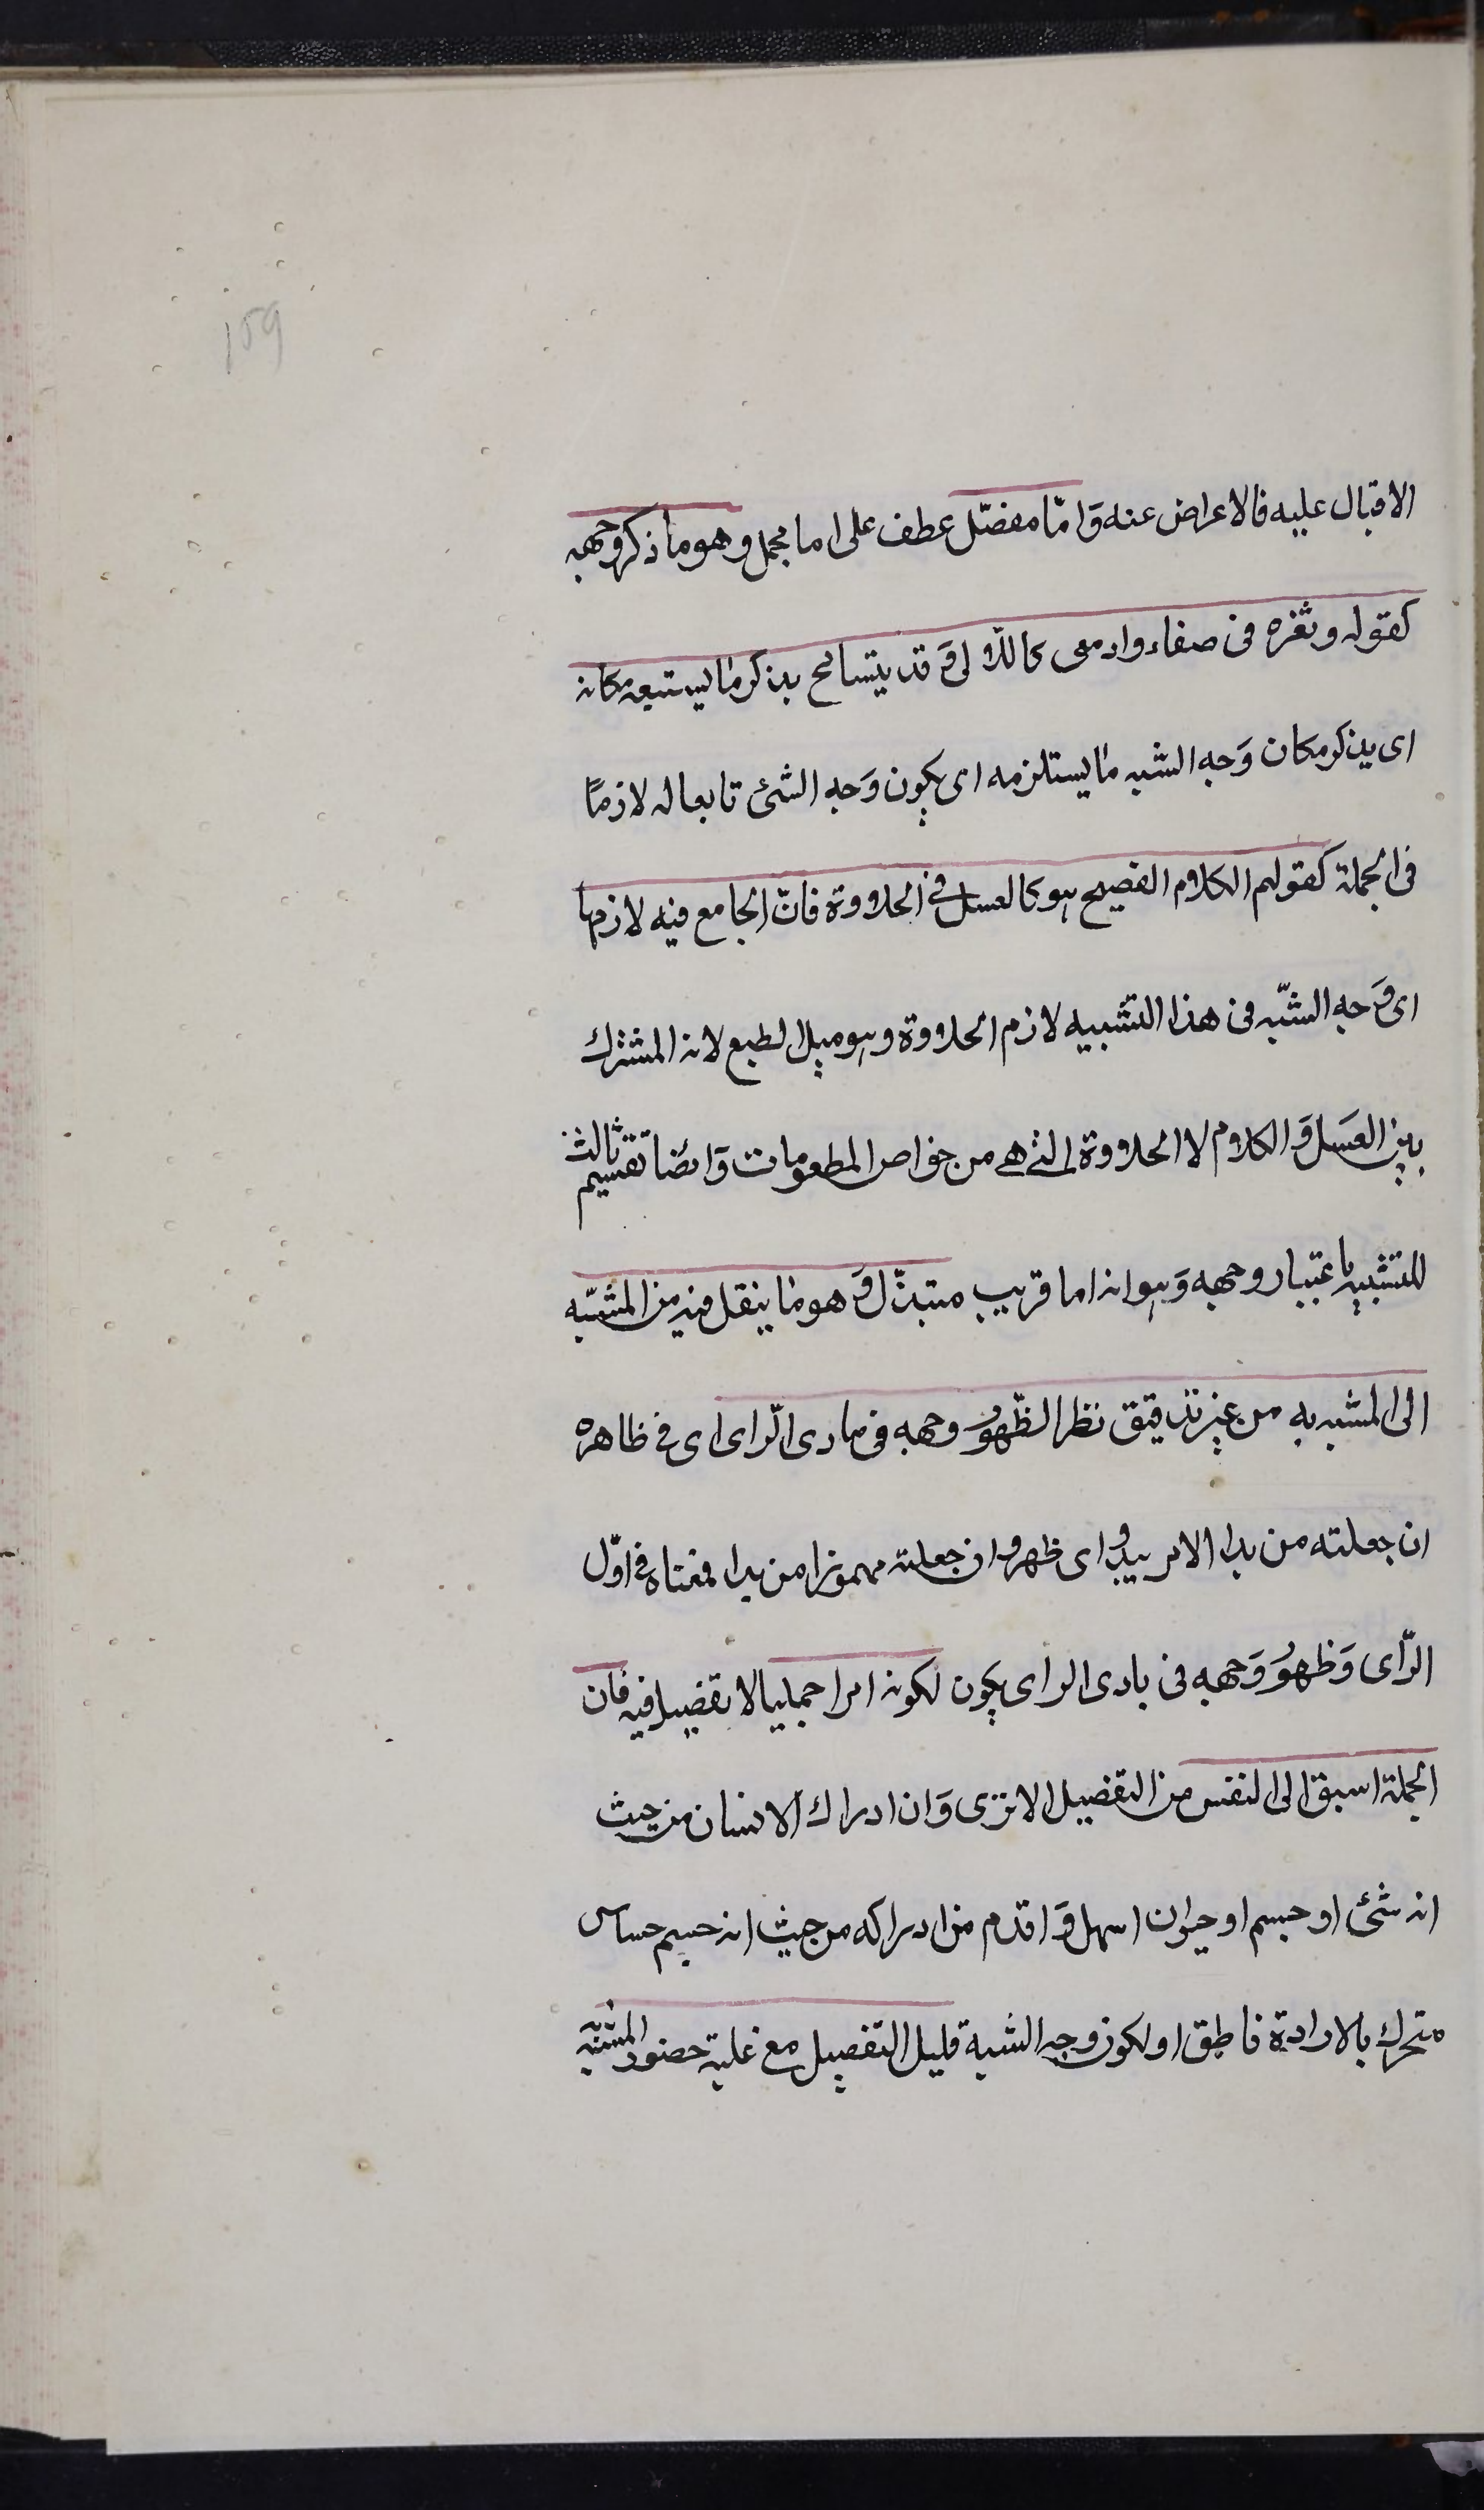 159
الاقبال عليه فالاعراض عنه وَامّا مفصّل عطف على اما مجمل وهو ما ذكر وجهه
كقوله وثغره فى صفاء وادمعى كاللآلى وَقد يتسامح بذكر ما يستتبعه مكانه
اى يذكر مكان وَجه الشبه ما يستلزمه اى يكون وَجه الشئ تابعا له لازمًا
فى الجملة كقولهم الكلام الفصيح هو كالعسل فى الحلاوة فانّ الجامع فيه لازمها
اى وَجه الشّبه فى هذا التشبيه لازم الحلاوة وهو ميل الطبع لانه المشترك
بين العسَل وَالكلام لا الحلاوة التى هى من خواص المطعومات وَايضًا تقسيم ثالث
للتشبيه باعتبار وجهه وَهو انه اما قريب مبتذّل وَهو ما ينقل فيه من المشبّه
الى المشبه به من غير تدقيق نظر الظّهوُر وجهه فى بادى الرّاى اى فى ظاهره
ان جعلته من بدا الامر يبدو اى ظهر وان جعلته مهموزا من بدا فمعناه فى اوّل
الرّاى وَظهوُر وَجهه فى بادى الراى يكون لكونه امرا جمليا لا تفصيل فيه فان
الجملة اسبق الى النفس من التفصيل الا ترى وَان ادراك الانسان من حيث
انه شئ او جسم او حيوان اسهل وَاقدم من ادراكه من حيث انه جسم حساس
متحرك بالارادة ناطق او لكون وجه الشبه قليل التفصيل مع غلبة حضور المشبّه